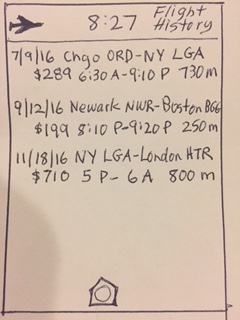 8:27
Flight
History
7/9/16 Chgo ORD-NY LGA
$289 6:30A-9:10 P 730m
9/12/16 Newark NWR-Boston BGG
$199 8:10 P-9:20P 250m
11/18/16 NY LGA-London HTR
$710 5 P- 6 A 800 m